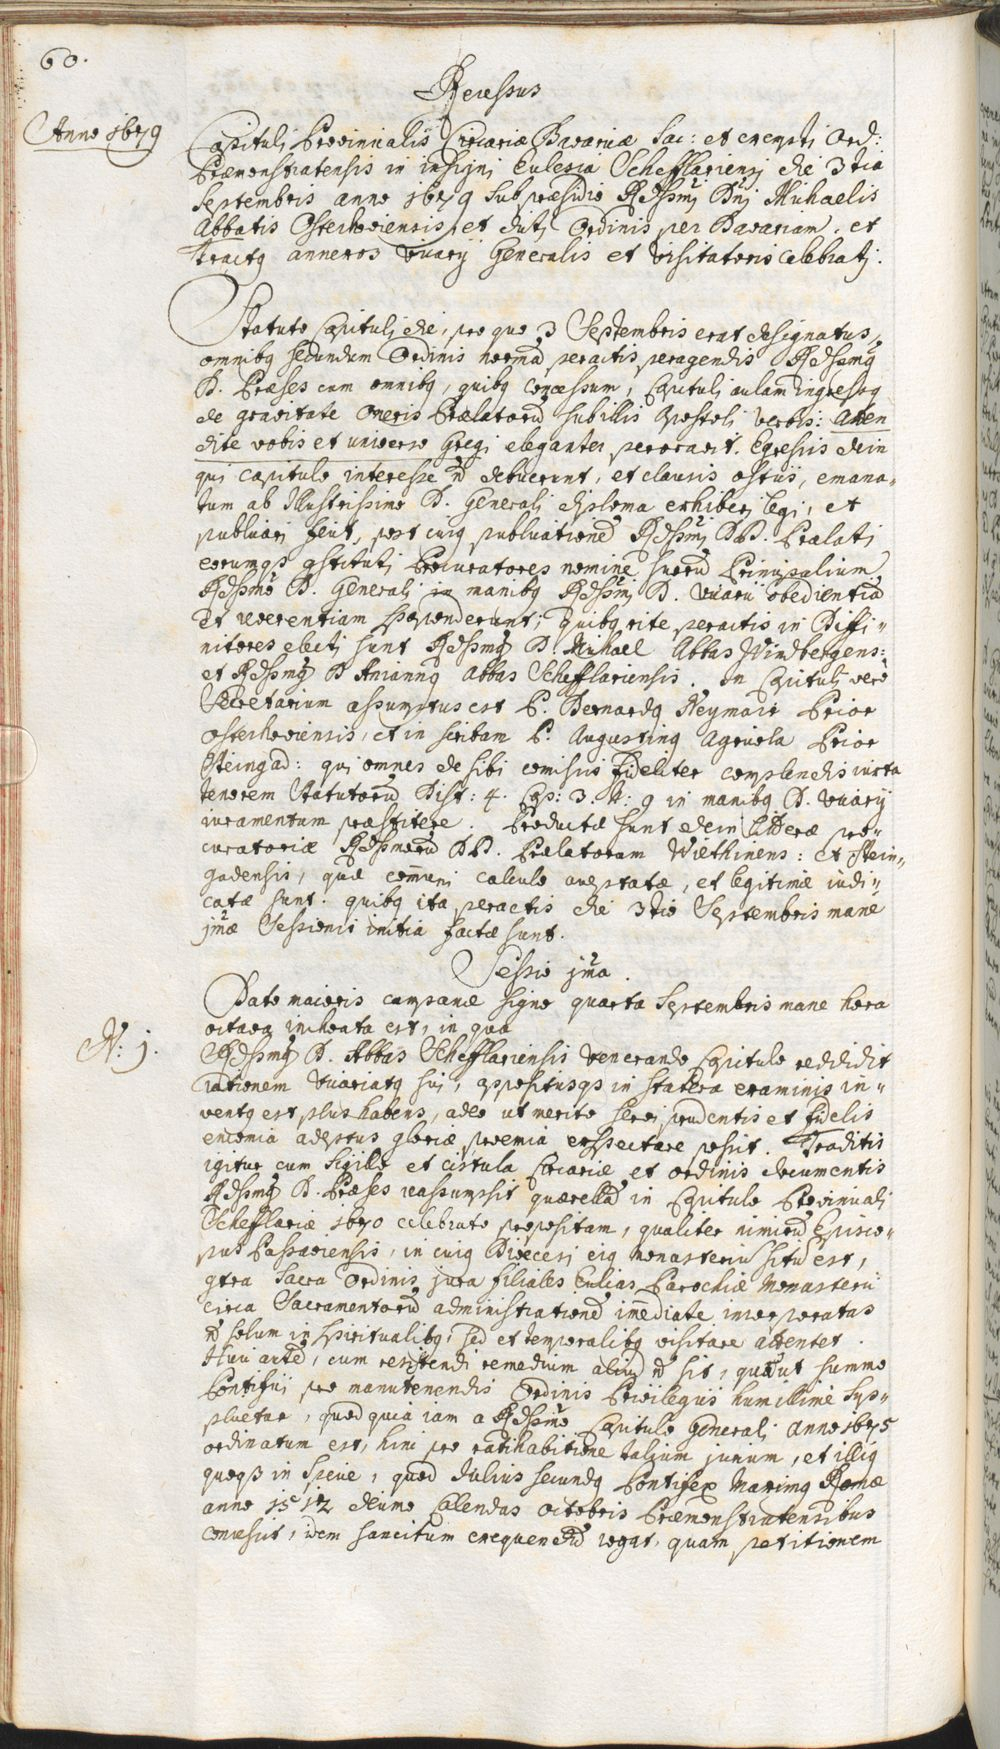 60.
Recessus
Anno 1679
Capitulj Provincialis Circariæ Bavariæ Sac: et exemptj Ord:
Præmonstratensis in insignj Ecclesia Schefflariensj die 3tia
Septembris anno 1679 sub præsidio Rdssmj Dnj Michaelis
Abbatis Osterhoviensis, et dictj Ordinis per Bavariam, et
tractq annexos Vicarij Generalis et Visitatoris celebratj.
Statuto Capitulj die, pro quo 3 Septembris erat designatus,
omnibq secundum Ordinis normã peractis peragendis Rdssmq
D. Præses cum omnibq, quibq congressum, Capitulj aulam ingressq
de gravitate Oneris Prælatorũ sub illis Apostoli verbis: Atten
dite vobis et universo Gregi eleganter peroravit. Egressis dein
qui capitulo interesse ñ debuerunt, et clausis ostiis, emana„
tum ab Illustrissimo D. Generalj diploma exhiberj legi, et
publicarj fecit, post cuiq publicationẽ Rdssmj DD. Prælatj
eorumqß constitutj Procuratores nomine suorũ Principalium
Rdssmo D. Generalj in manibq Rdssmj D. Vicarii obedientiã
et reverentiam spoponderunt; quibq rite peractis in Diffi„
nitores electj sunt Rdssmq D. Michael Abbas Windbergens:
et Rdssmq D Aniannq Abbas Schefflariensis. In Capitulj vero
Secretarium assumptus est P. Bernardq Neymair Prior
Osterhoviensis, et in scribam P. Augustinq Agricola Prior
Steingad: qui omnes de sibi comissis fideliter complendis iuxta
tenorem Statutorũ Dist: 4. Cap: 3. N: 9 in manibq D. Vicarij
iuramentum præstitere. Productæ sunt dein litteræ pro„
curatoriæ Rdssmorũ DD. Prælatorum Wilthinens: et Stein„
gadensis, quæ comuni calculo acceptatæ, et legitimæ iudi„
catæ sunt. quibq ita peractis die 3tio Septembris mane
jmæ Sessionis initia factæ sunt.
Sessio jma.
Dato maioris campanæ signo quarta Septembris mane hora
octava inchoata est, in qua
N: j.
Rdssmq D. Abbas Schefflariensis Venerando Capitulo reddidit
rationem Vicariatq sui, appositusqß in statera examinis in„
ventq est plus habens, adeo ut merito servi prudentis et fidelis
encomia adeptus gloriæ præmia exspectare possit. Traditis
igitur cum Sigillo et cistula Circariæ et ordinis documentis
Rdssmq D. Præses reassumpsit quærellã in Capitulo Provincialj
Schefflariæ 1670 celebrato propositam, qualiter nimirũ Episco„
pus Passaviensis, in cuiq Diœcesj eiq monasteriũ sitũ est,
contra Sacra Ordinis jura filiales Ecclias Parochiæ Monasterii
circa Sacramentorũ administrationẽ imediate incorporatas
ñ solum in spiritualibq, sed et temporalibq visitare attentet.
Huic autẽ, cum resistendi remedium aliud ñ sit, quam ut summo
Pontifici pro manutenendis Ordinis Privilegiis humillime sup„
plicetur, quod quia iam a Rdssmo Capitulo Generalj anno 1675
ordinatum est, hinc pro ratihabitione talium jurium, et illiq
quoqß in specie, quod Julius secundq Pontifex Maximq Romæ
anno 1512 decimo Calendas octobris Præmonstratensibus
concessit, idem sancitum exequendũ rogat, quam petitionem